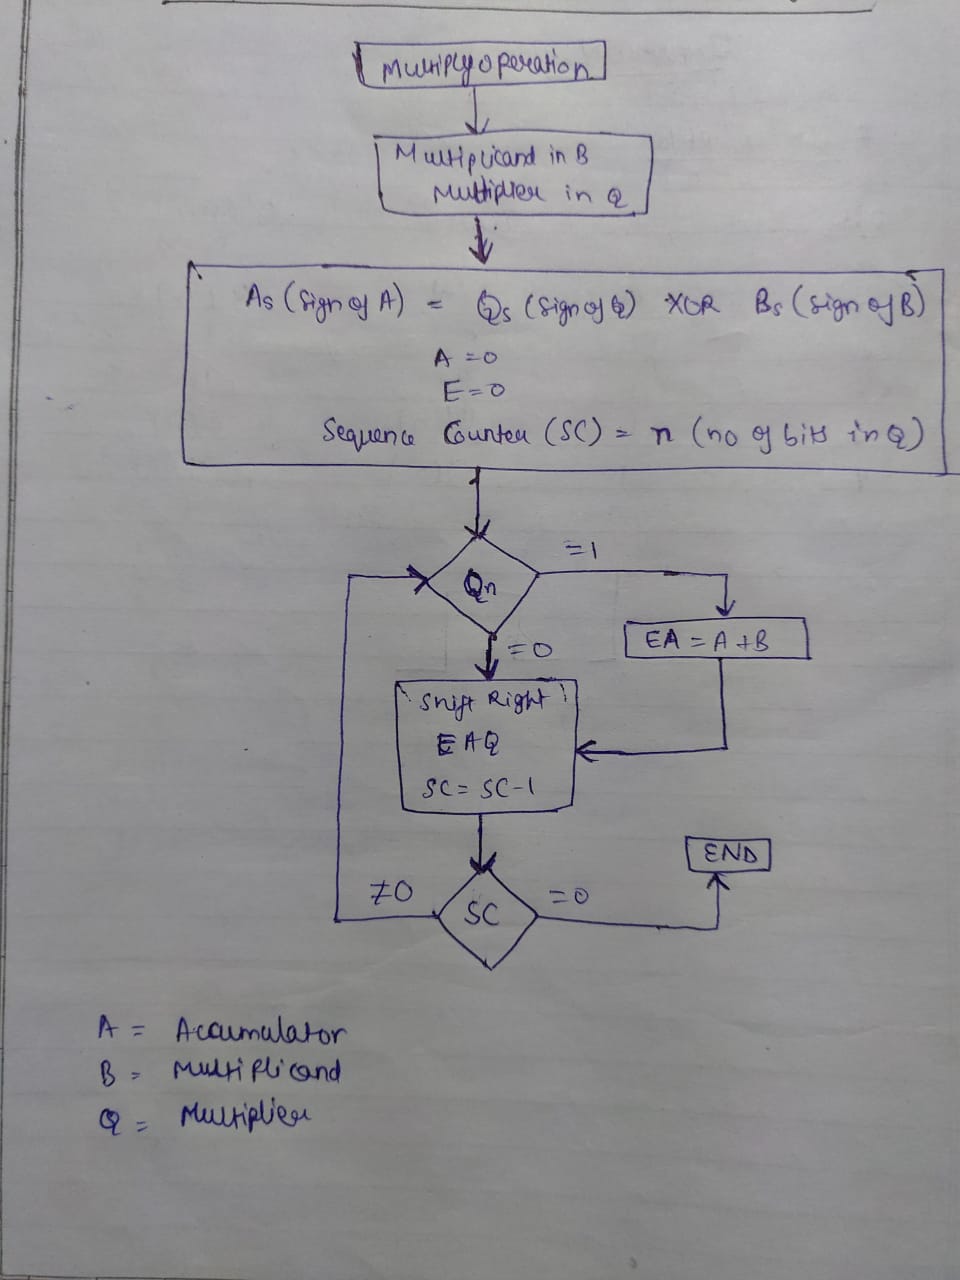 Multiply operation
Multiplicand in B
Multiplier in Q
As (Sign of A) = Qs (Sign of Q) XOR Bs (Sign of B)
A = 0
E = 0
Sequence Counter (SC) = n (no of bits in Q)
Qn
=1
EA = A + B
=0
Shift Right
EAQ
SC = SC-1
END
≠0
SC
=0
A = Accumulator
B = Multiplicand
Q = Multiplier